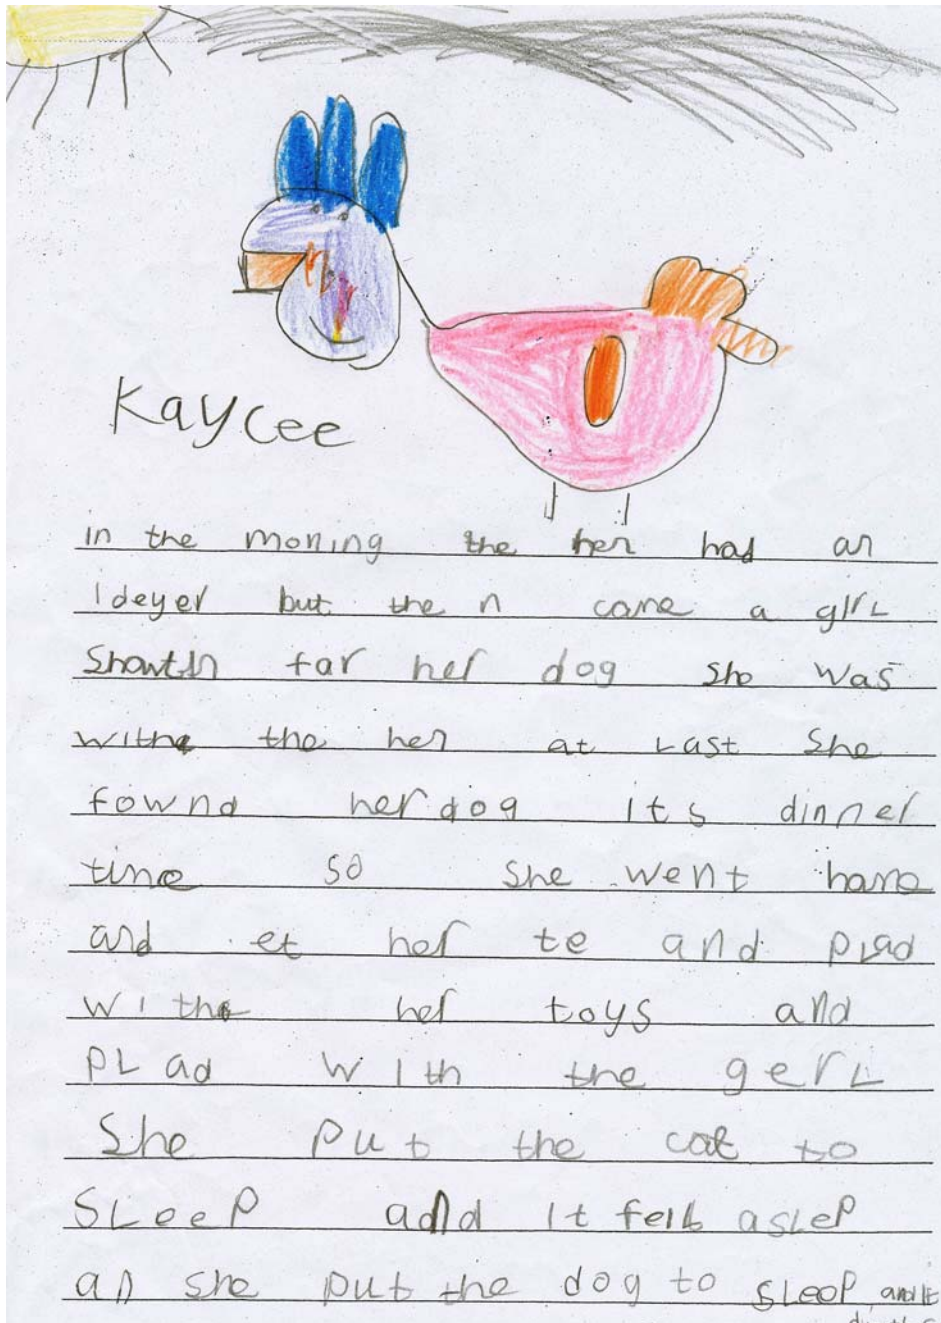 Kaycee
in the moning the hen had an
ideyer but the n came a girl
Showtin far her dog she was
withe the hen at last she
fownd her dog its dinner
time so she went home
and et her te and plad
withe her toys and
plad with the gerl
She put the cat to
sleep and it fell aslep
an she put the dog to sleep and it